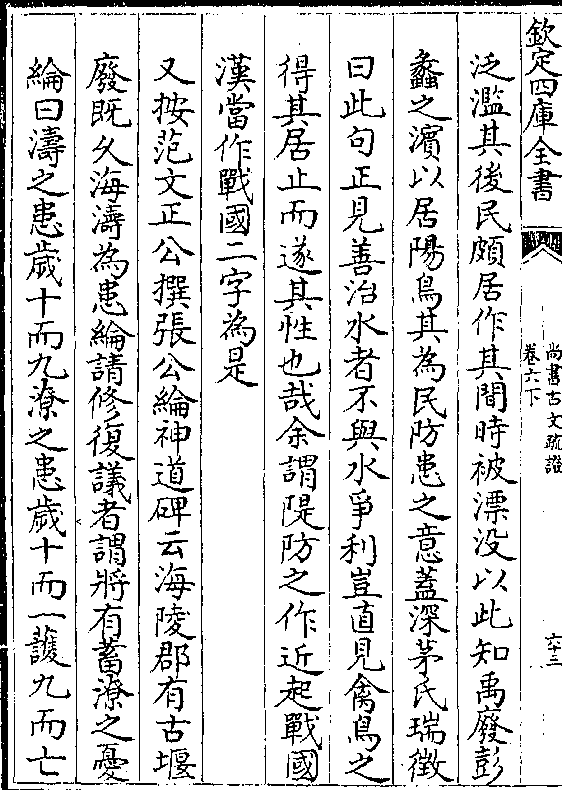 欽定四庫全書
尚書古文疏證
卷六下
六十三
泛濫其後民頗居作其間時被漂没以此知禹廢彭
蠡之濱以居陽鳥其為民防患之意蓋深茅氏瑞徵
曰此句正見善治水者不與水爭利豈直見禽鳥之
得其居止而遂其性也哉余謂隄防之作近起戰國
漢當作戰國二字為是
又按范文正公撰張公綸神道碑云海陵郡有古堰
廢既久海濤為患綸請修復議者謂將有蓄潦之憂
綸曰濤之患歲十而九潦之患歲十而一䕶九而亡